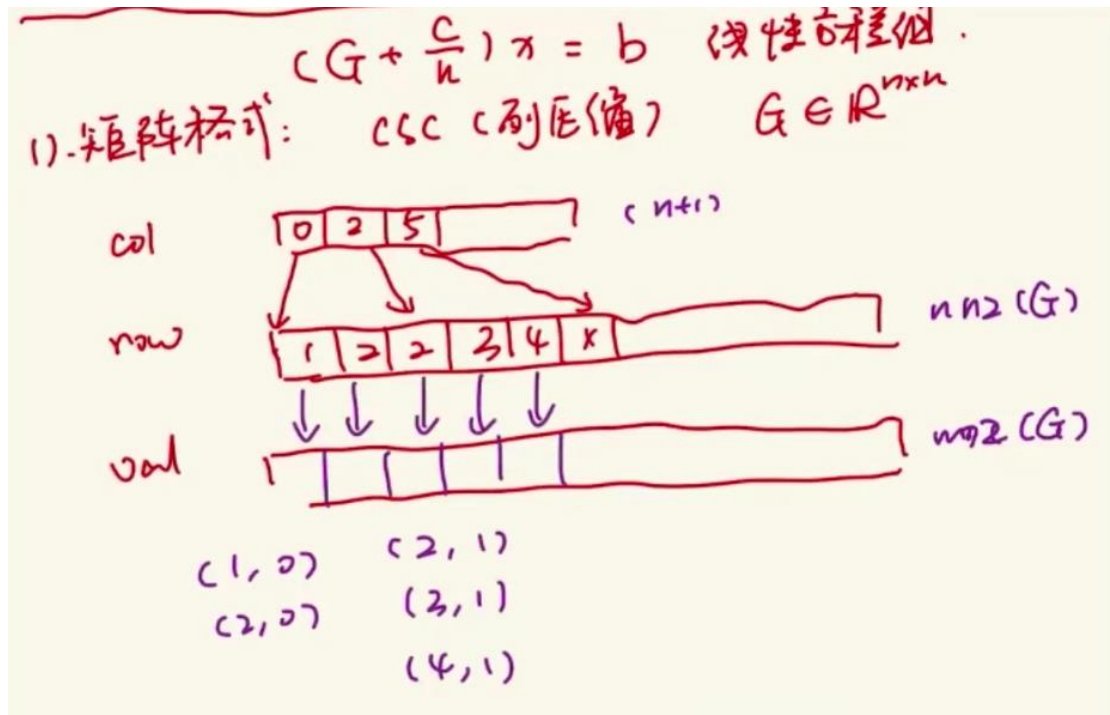 (G + C/h) x = b 线性方程组.
1).矩阵格式: CSC (列压缩) G ∈ ℝⁿˣⁿ
col 0 2 5 (n+1)
row 1 2 2 3 4 x nnz(G)
val nnz(G)
(1,0) (2,1)
(2,0) (3,1)
(4,1)